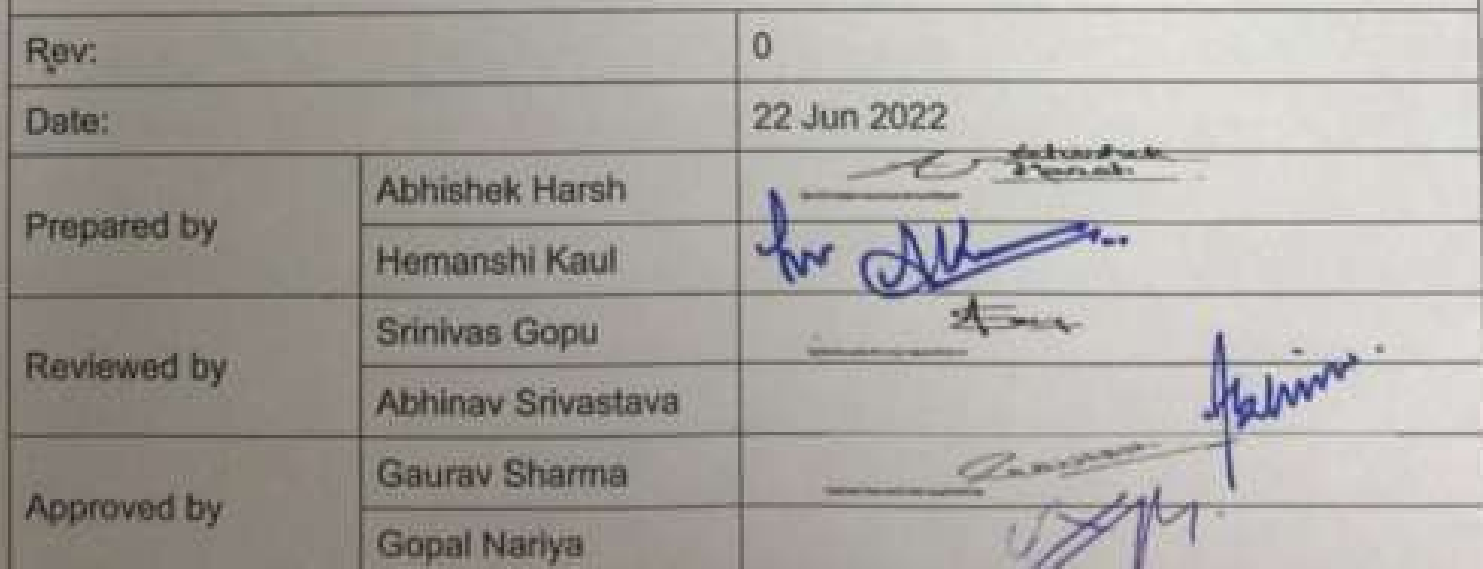 Rev: 0
Date: 22 Jun 2022
Prepared by
Abhishek Harsh
Hemanshi Kaul
for
Reviewed by
Srinivas Gopu
Abhinav Srivastava
Abhinav
Approved by
Gaurav Sharma
Gopal Nariya